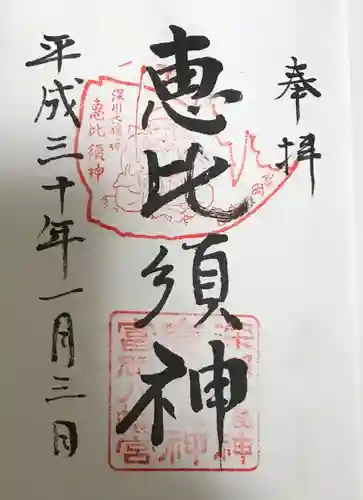 奉拝
恵比須神
平成三十年一月三日
深川七福神
恵比須神